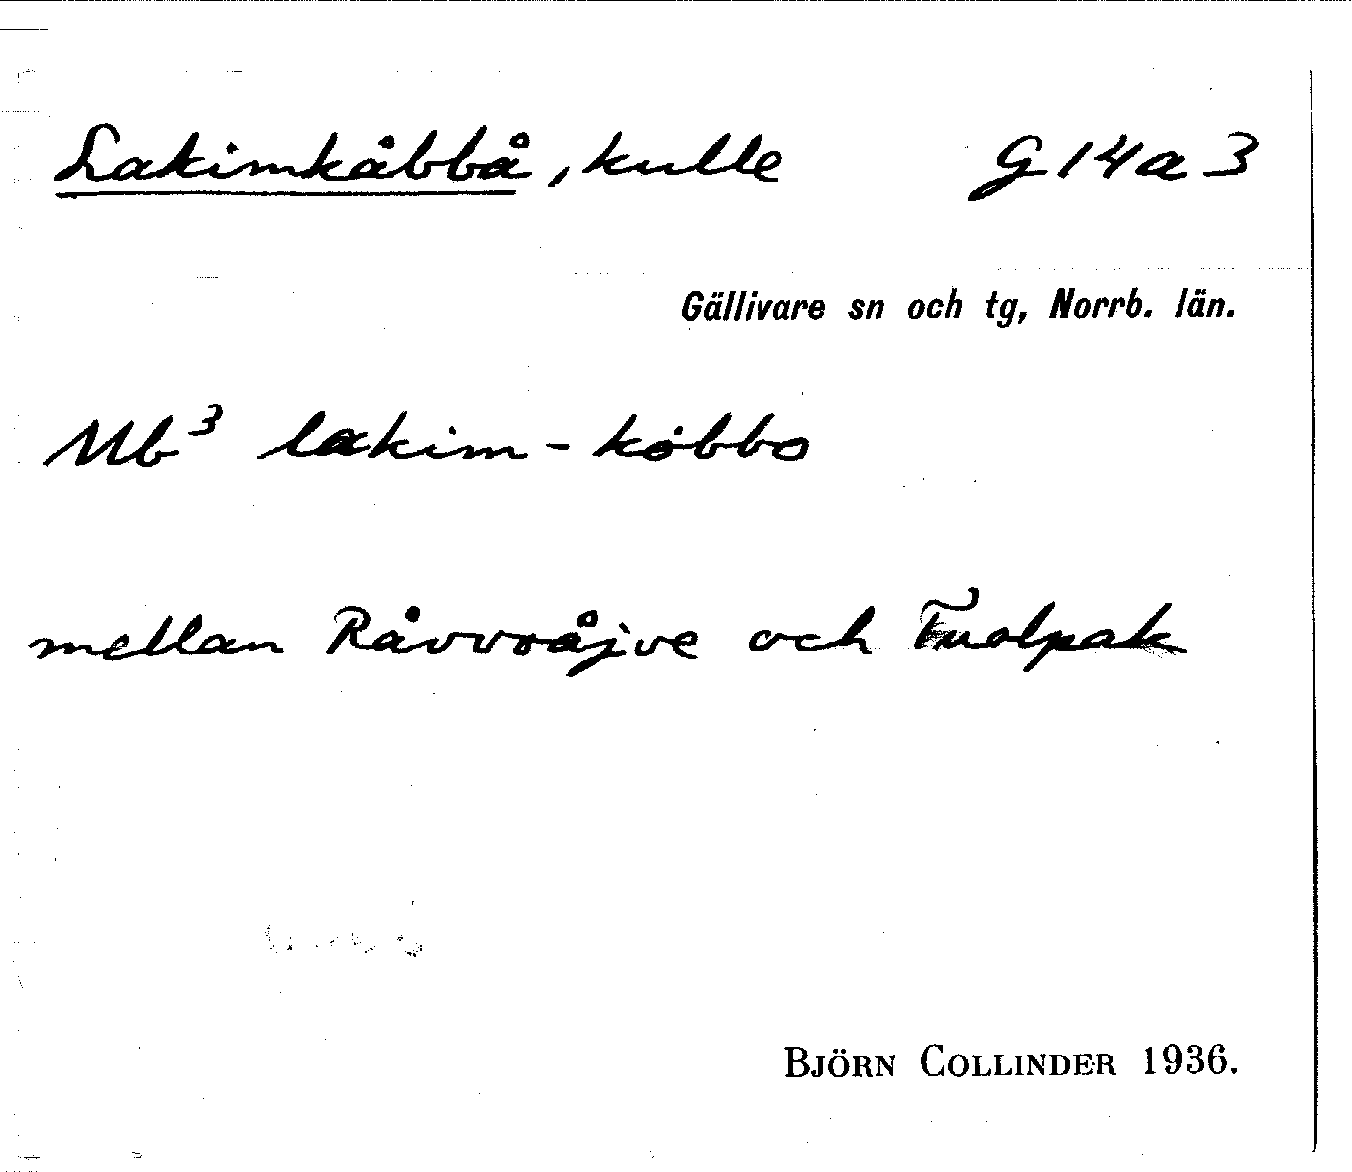 Lakimkåbbå, kulle G 14 a 3
Gällivare sn och tg, Norrb. län.
Mb³ lakim-kȯbbo
mellan Råvvoåjve och Tuolpak
BJÖRN COLLINDER 1936.